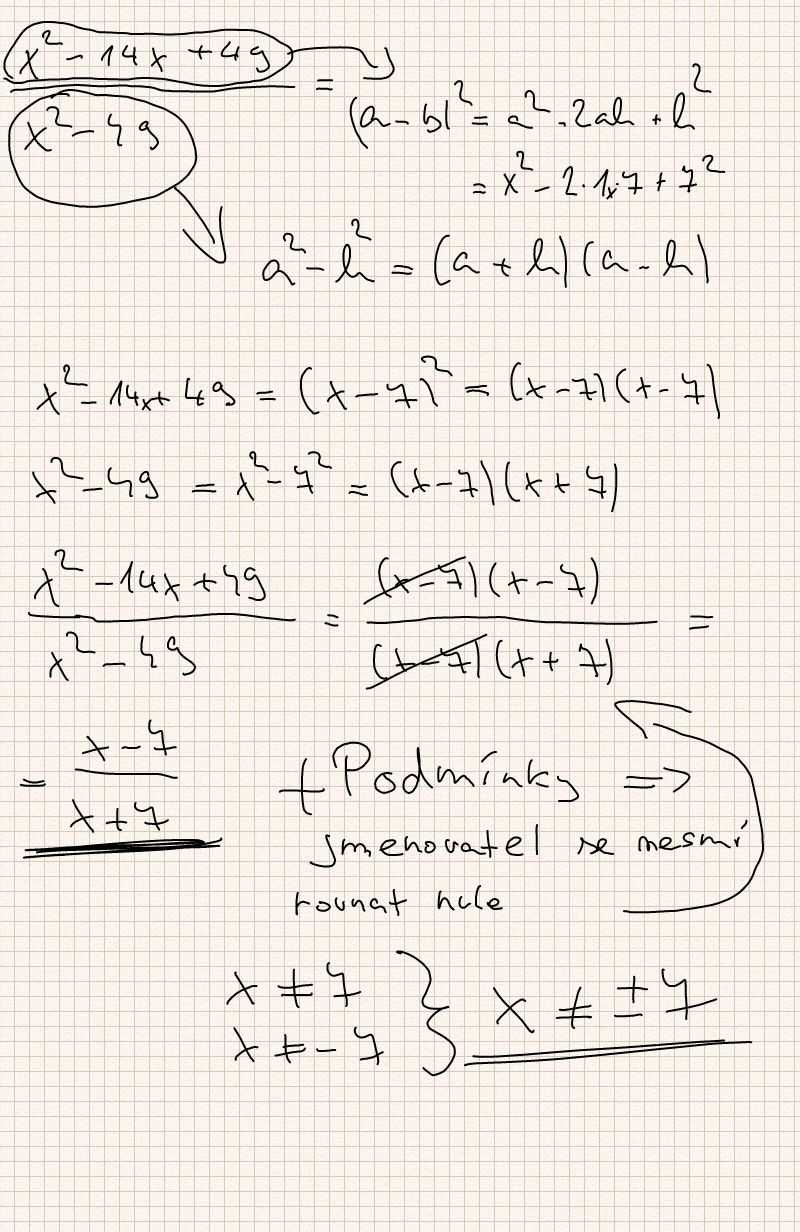 x² - 14x + 49
x² - 49
=
(a - b)² = a² - 2ab + b²
= x² - 2·1x·7 + 7²
a² - b² = (a + b)(a - b)
x² - 14x + 49 = (x - 7)² = (x - 7)(x - 7)
x² - 49 = x² - 7² = (x - 7)(x + 7)
x² - 14x + 49 = (x - 7)(x - 7) =
x² - 49 (x - 7)(x + 7)
= x - 7
x + 7
+ Podmínky ⇒
Jmenovatel se nesmí
rovnat nule
x ≠ 7
x ≠ - 7
} x ≠ ± 7